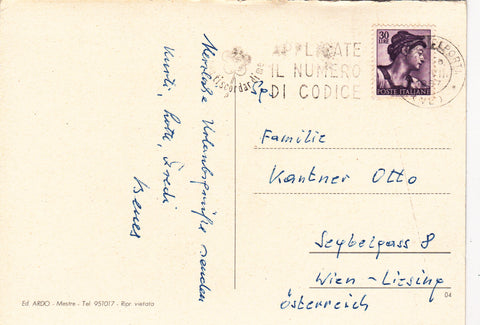 Herzliche Urlaubsgrüße senden
Kurti, Lotte, Fredi
30
LIRE
POSTE ITALIANE
APPLICATE
IL NUMERO
DI CODICE
Familie
Kantner Otto
Seybelgass 8
Wien - Liesing
Österreich
Ed. ARDO - Mestre - Tel. 951017 - Ripr. vietata
04